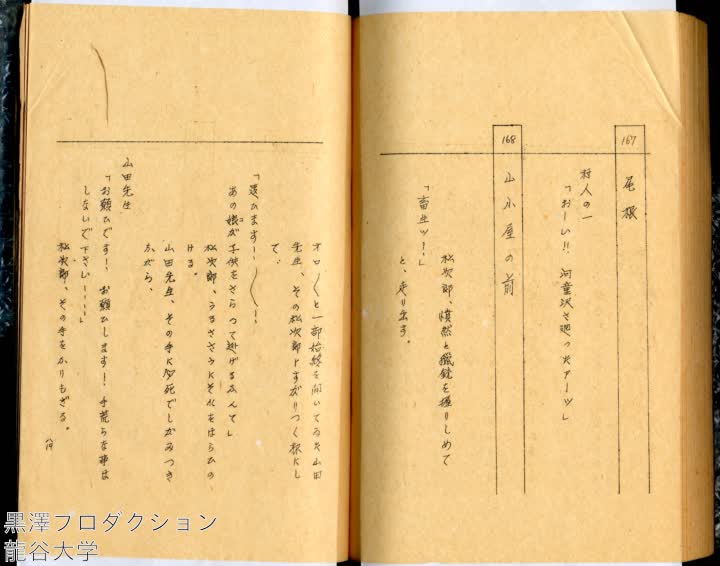 167
尾根
村人の一
「おーい!! 河童沢さ廻ったァーッ」
168
山小屋の前
「畜生ツ!」
松次郎、憤然と猟銃を握りしめて
と、走り出す。
オロ〳〵と一部始終を聞いてゐた山田
先生、その松次郎にすがりつく様にし
て、
「違ひます!〳〵!
あの娘が子供をさらつて逃げるなんて」
松次郎、うるささうにそれをはらひの
ける。
山田先生、その手に必死でしがみつき
ながら、
山田先生
「お願ひです! お願ひします! 手荒らな事は
しないで下さい……」
松次郎、その手をふりもぎる。
黒澤プロダクション
龍谷大学